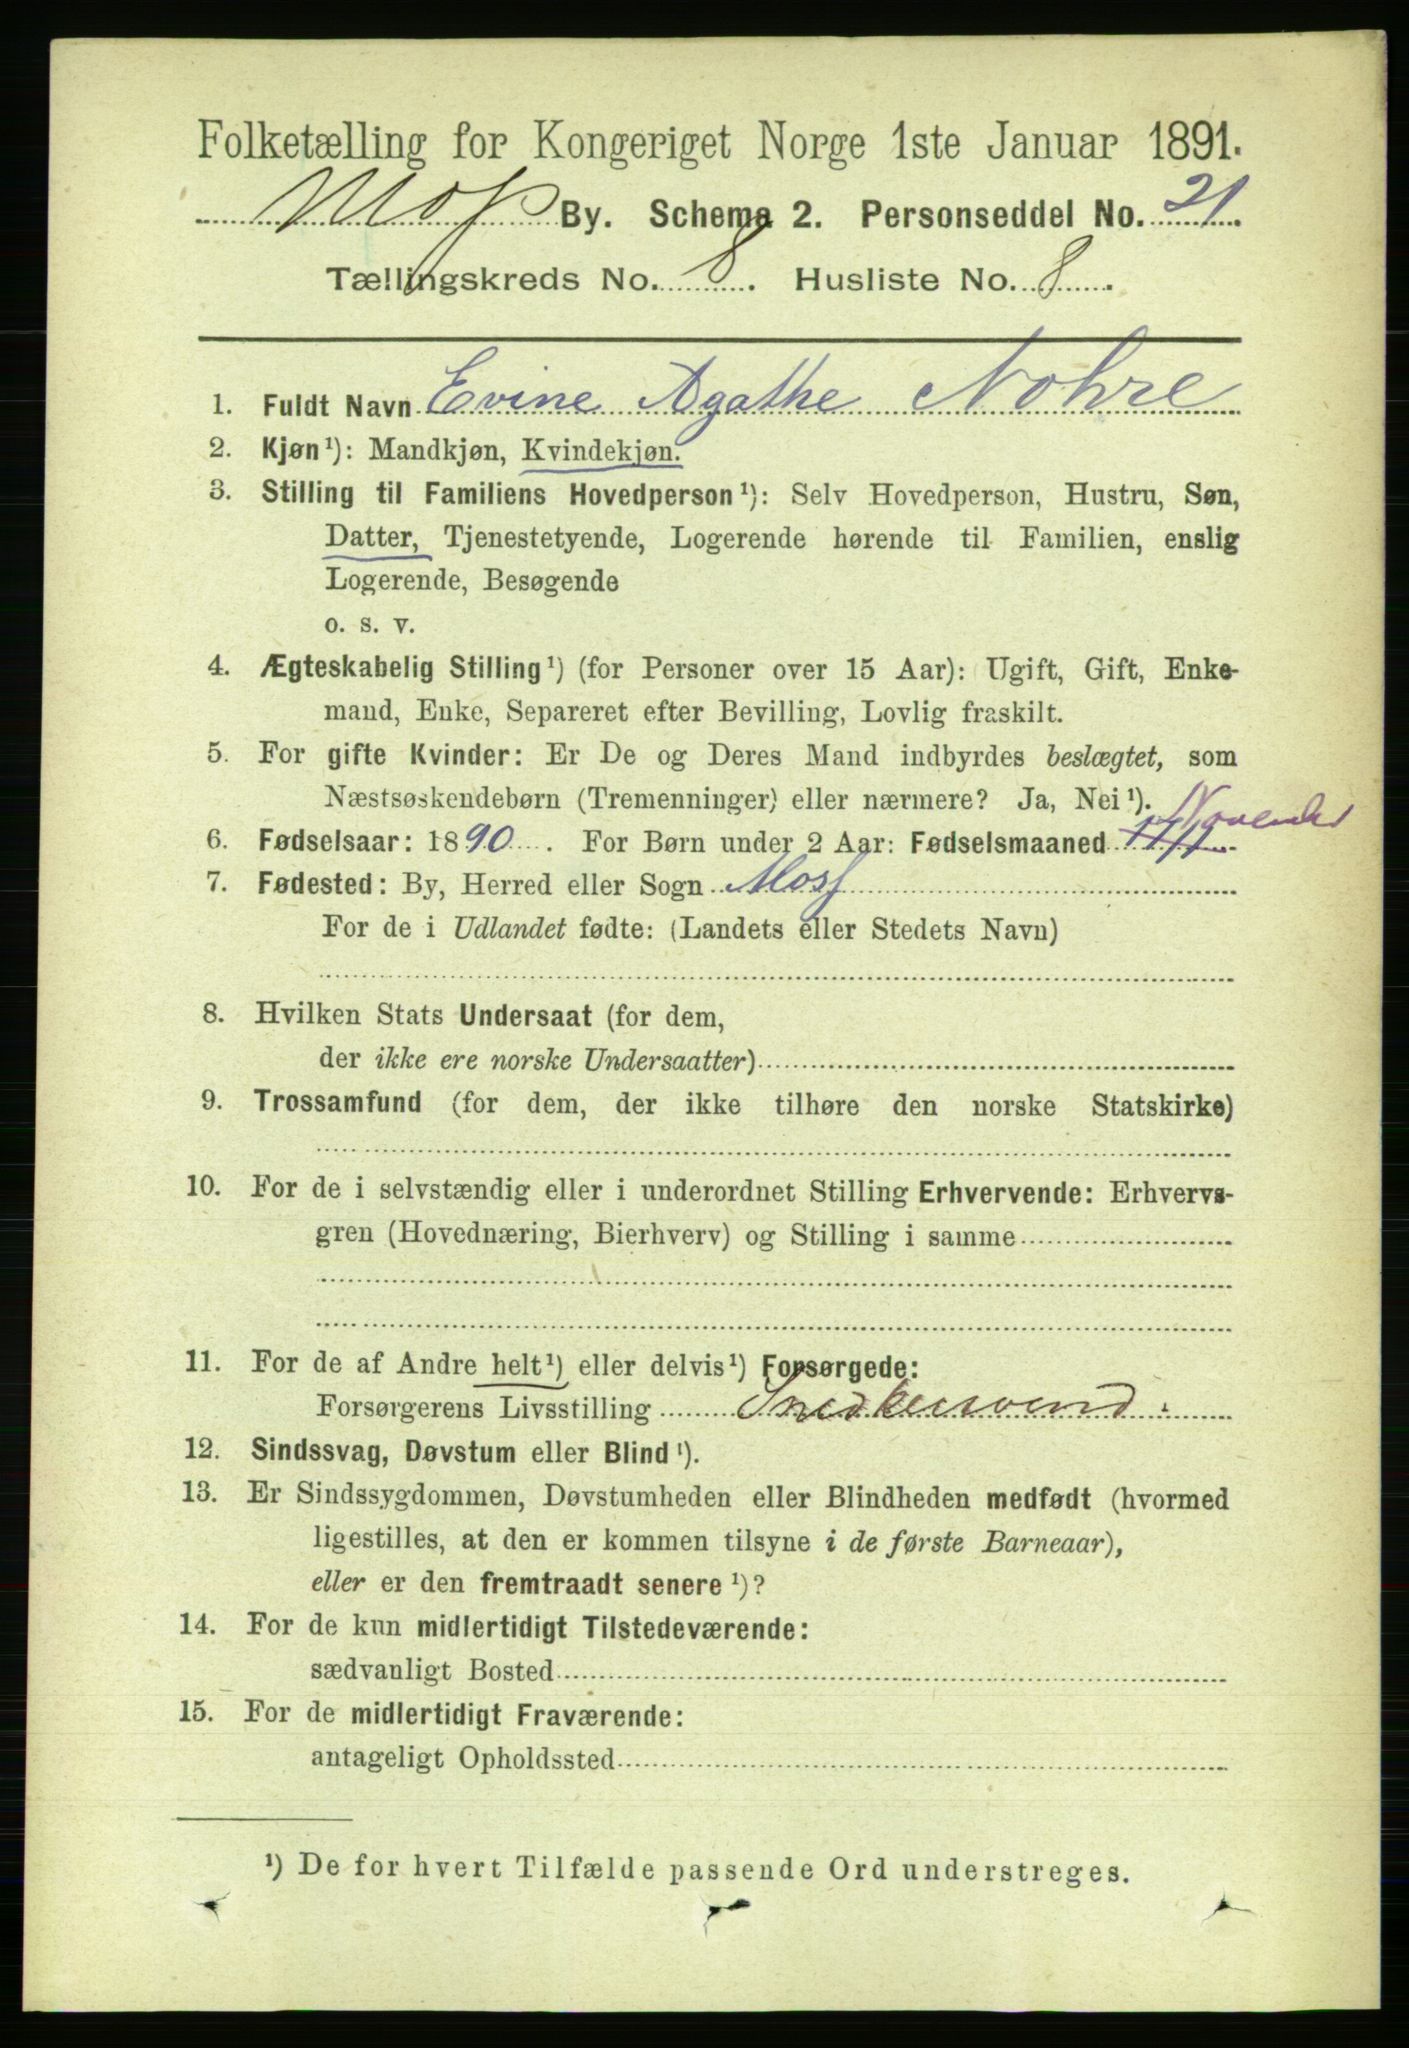 Folketælling for Kongeriget Norge 1ste Januar 1891.
Moss By. Schema 2. Personseddel No. 21.
Tællingskreds No. 8. Husliste No. 8.
1. Fuldt Navn Evine Agathe Nohre
2. Kjøn¹): Mandkjøn, Kvindekjøn.
3. Stilling til Familiens Hovedperson¹): Selv Hovedperson, Hustru, Søn,
Datter, Tjenestetyende, Logerende hørende til Familien, enslig
Logerende, Besøgende
o. s. v.
4. Ægteskabelig Stilling¹) (for Personer over 15 Aar): Ugift, Gift, Enke-
mand, Enke, Separeret efter Bevilling, Lovlig fraskilt.
5. For gifte Kvinder: Er De og Deres Mand indbyrdes beslægtet, som
Næstsøskendebørn (Tremenninger) eller nærmere? Ja, Nei¹).
6. Fødselsaar: 1890. For Børn under 2 Aar: Fødselsmaaned November
7. Fødested: By, Herred eller Sogn Moss
For de i Udlandet fødte: (Landets eller Stedets Navn)
8. Hvilken Stats Undersaat (for dem,
der ikke ere norske Undersaatter)
9. Trossamfund (for dem, der ikke tilhøre den norske Statskirke)
10. For de i selvstændig eller i underordnet Stilling Erhvervende: Erhvervs-
gren (Hovednæring, Bierhverv) og Stilling i samme
11. For de af Andre helt¹) eller delvis¹) Forsørgede:
Forsørgerens Livsstilling Snedkersvend.
12. Sindssvag, Døvstum eller Blind¹).
13. Er Sindssygdommen, Døvstumheden eller Blindheden medfødt (hvormed
ligestilles, at den er kommen tilsyne i de første Barneaar),
eller er den fremtraadt senere¹)?
14. For de kun midlertidigt Tilstedeværende:
sædvanligt Bosted
15. For de midlertidigt Fraværende:
antageligt Opholdssted
¹) De for hvert Tilfælde passende Ord understreges.